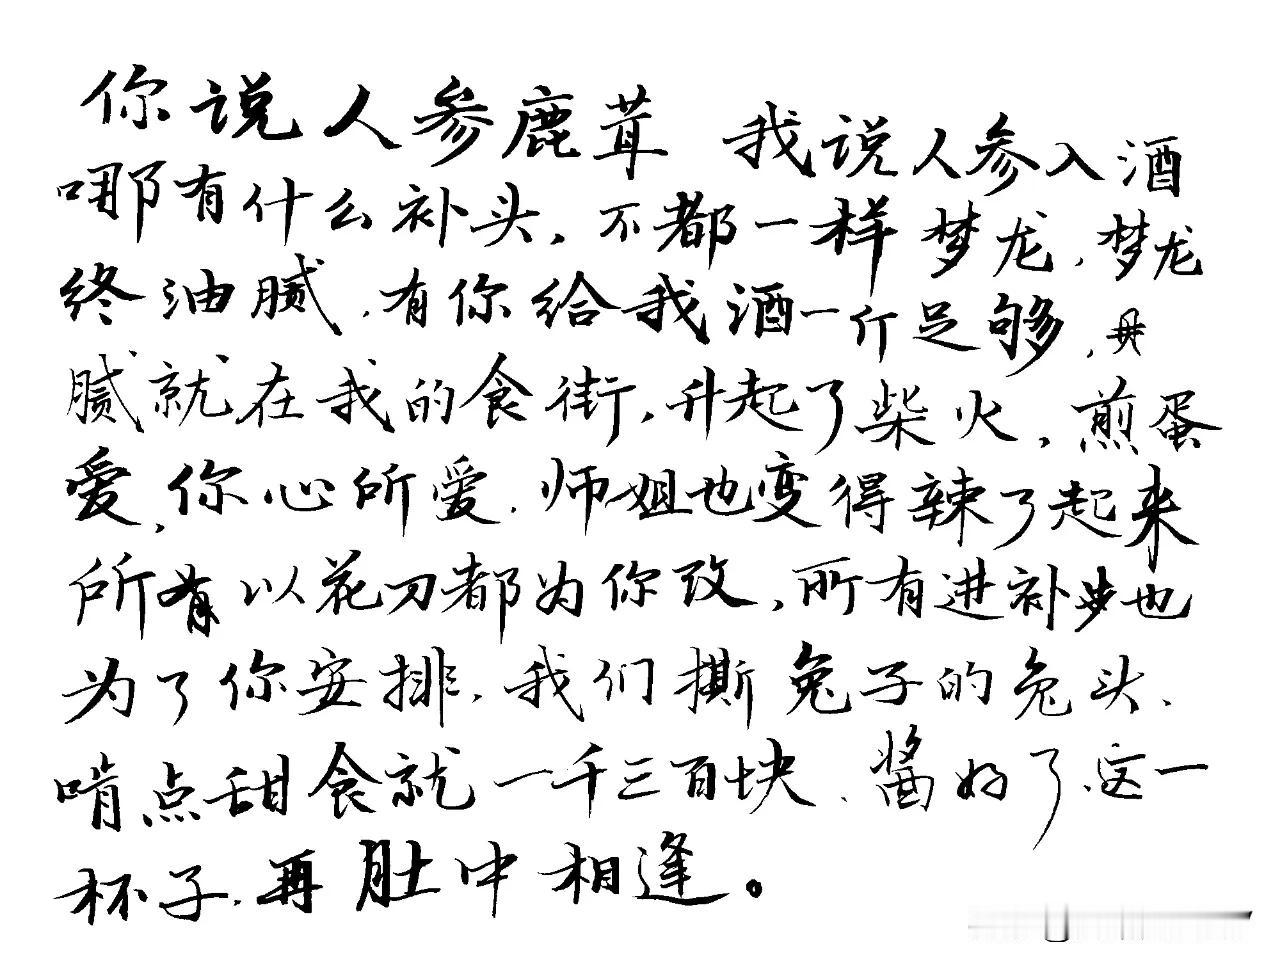 你说人参鹿茸 我说人参入酒
哪有什么补头，不都一样梦龙，梦龙
终油腻，有你给我酒一斤足够，
腻就在我的食街，升起了柴火，煎蛋
爱，你心所爱，师姐也变得辣了起来
所有以花刀都为你改，所有进补步也
为了你安排，我们撕兔子的兔头，
啃点甜食就一千三百块，酱好了，这一
杯子，再肚中相逢。